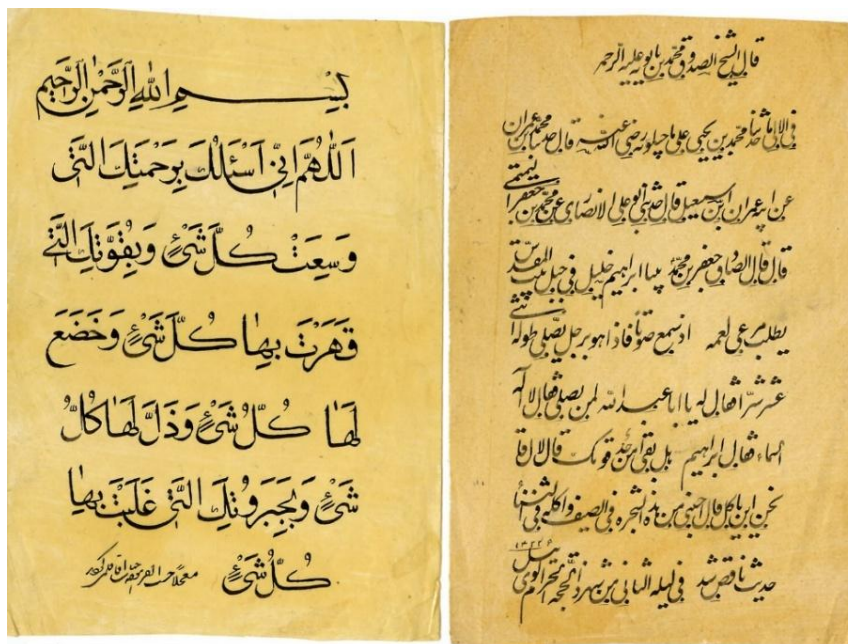 قال الشيخ الصدوق محمد بن بابويه عليه الرحمه
في الامالي حدثنا محمد بن يحيى علي ماجيلويه رضي عنه قال حدثنا محمد عمران
عن ابيه عمران ابن اسمعيل قال حدثني ابو علي الانصاري عن محمد بن جعفر
قال قال الصادق جعفر بن محمد بينا ابراهيم خليل في جبل بيت المقدس
يطلب مرعى لغمه اذ سمع صوتا فاذا هو برجل يصلي طوله
عشر شبرا فقال له يا ابا عبد الله لمن تصلي فقال لاله
السماء فقال ابراهيم بل بقي احد من قومك قال لا قال
اين ياكل قال اجتني من هذه الشجره في الصيف واكله في الشتاء
حديث ناقص شد في ليله الثاني من شهر ذي الحجه الحرام
بسم الله الرحمن الرحيم
اَللّٰهُمَّ اِنّي اَسْئَلُكَ بِرَحْمَتِكَ الَّتي
وَسِعَتْ كُلَّ شَيْءٍ وَبِقُوَّتِكَ الَّتي
قَهَرْتَ بِهٰا كُلَّ شَيْءٍ وَخَضَعَ
لَهٰا كُلُّ شَيْءٍ وَذَلَّ لَهٰا كُلُّ
شَيْءٍ وَبِجَبَرُوتِكَ الَّتي غَلَبْتَ بِهٰا
كُلَّ شَيْءٍ